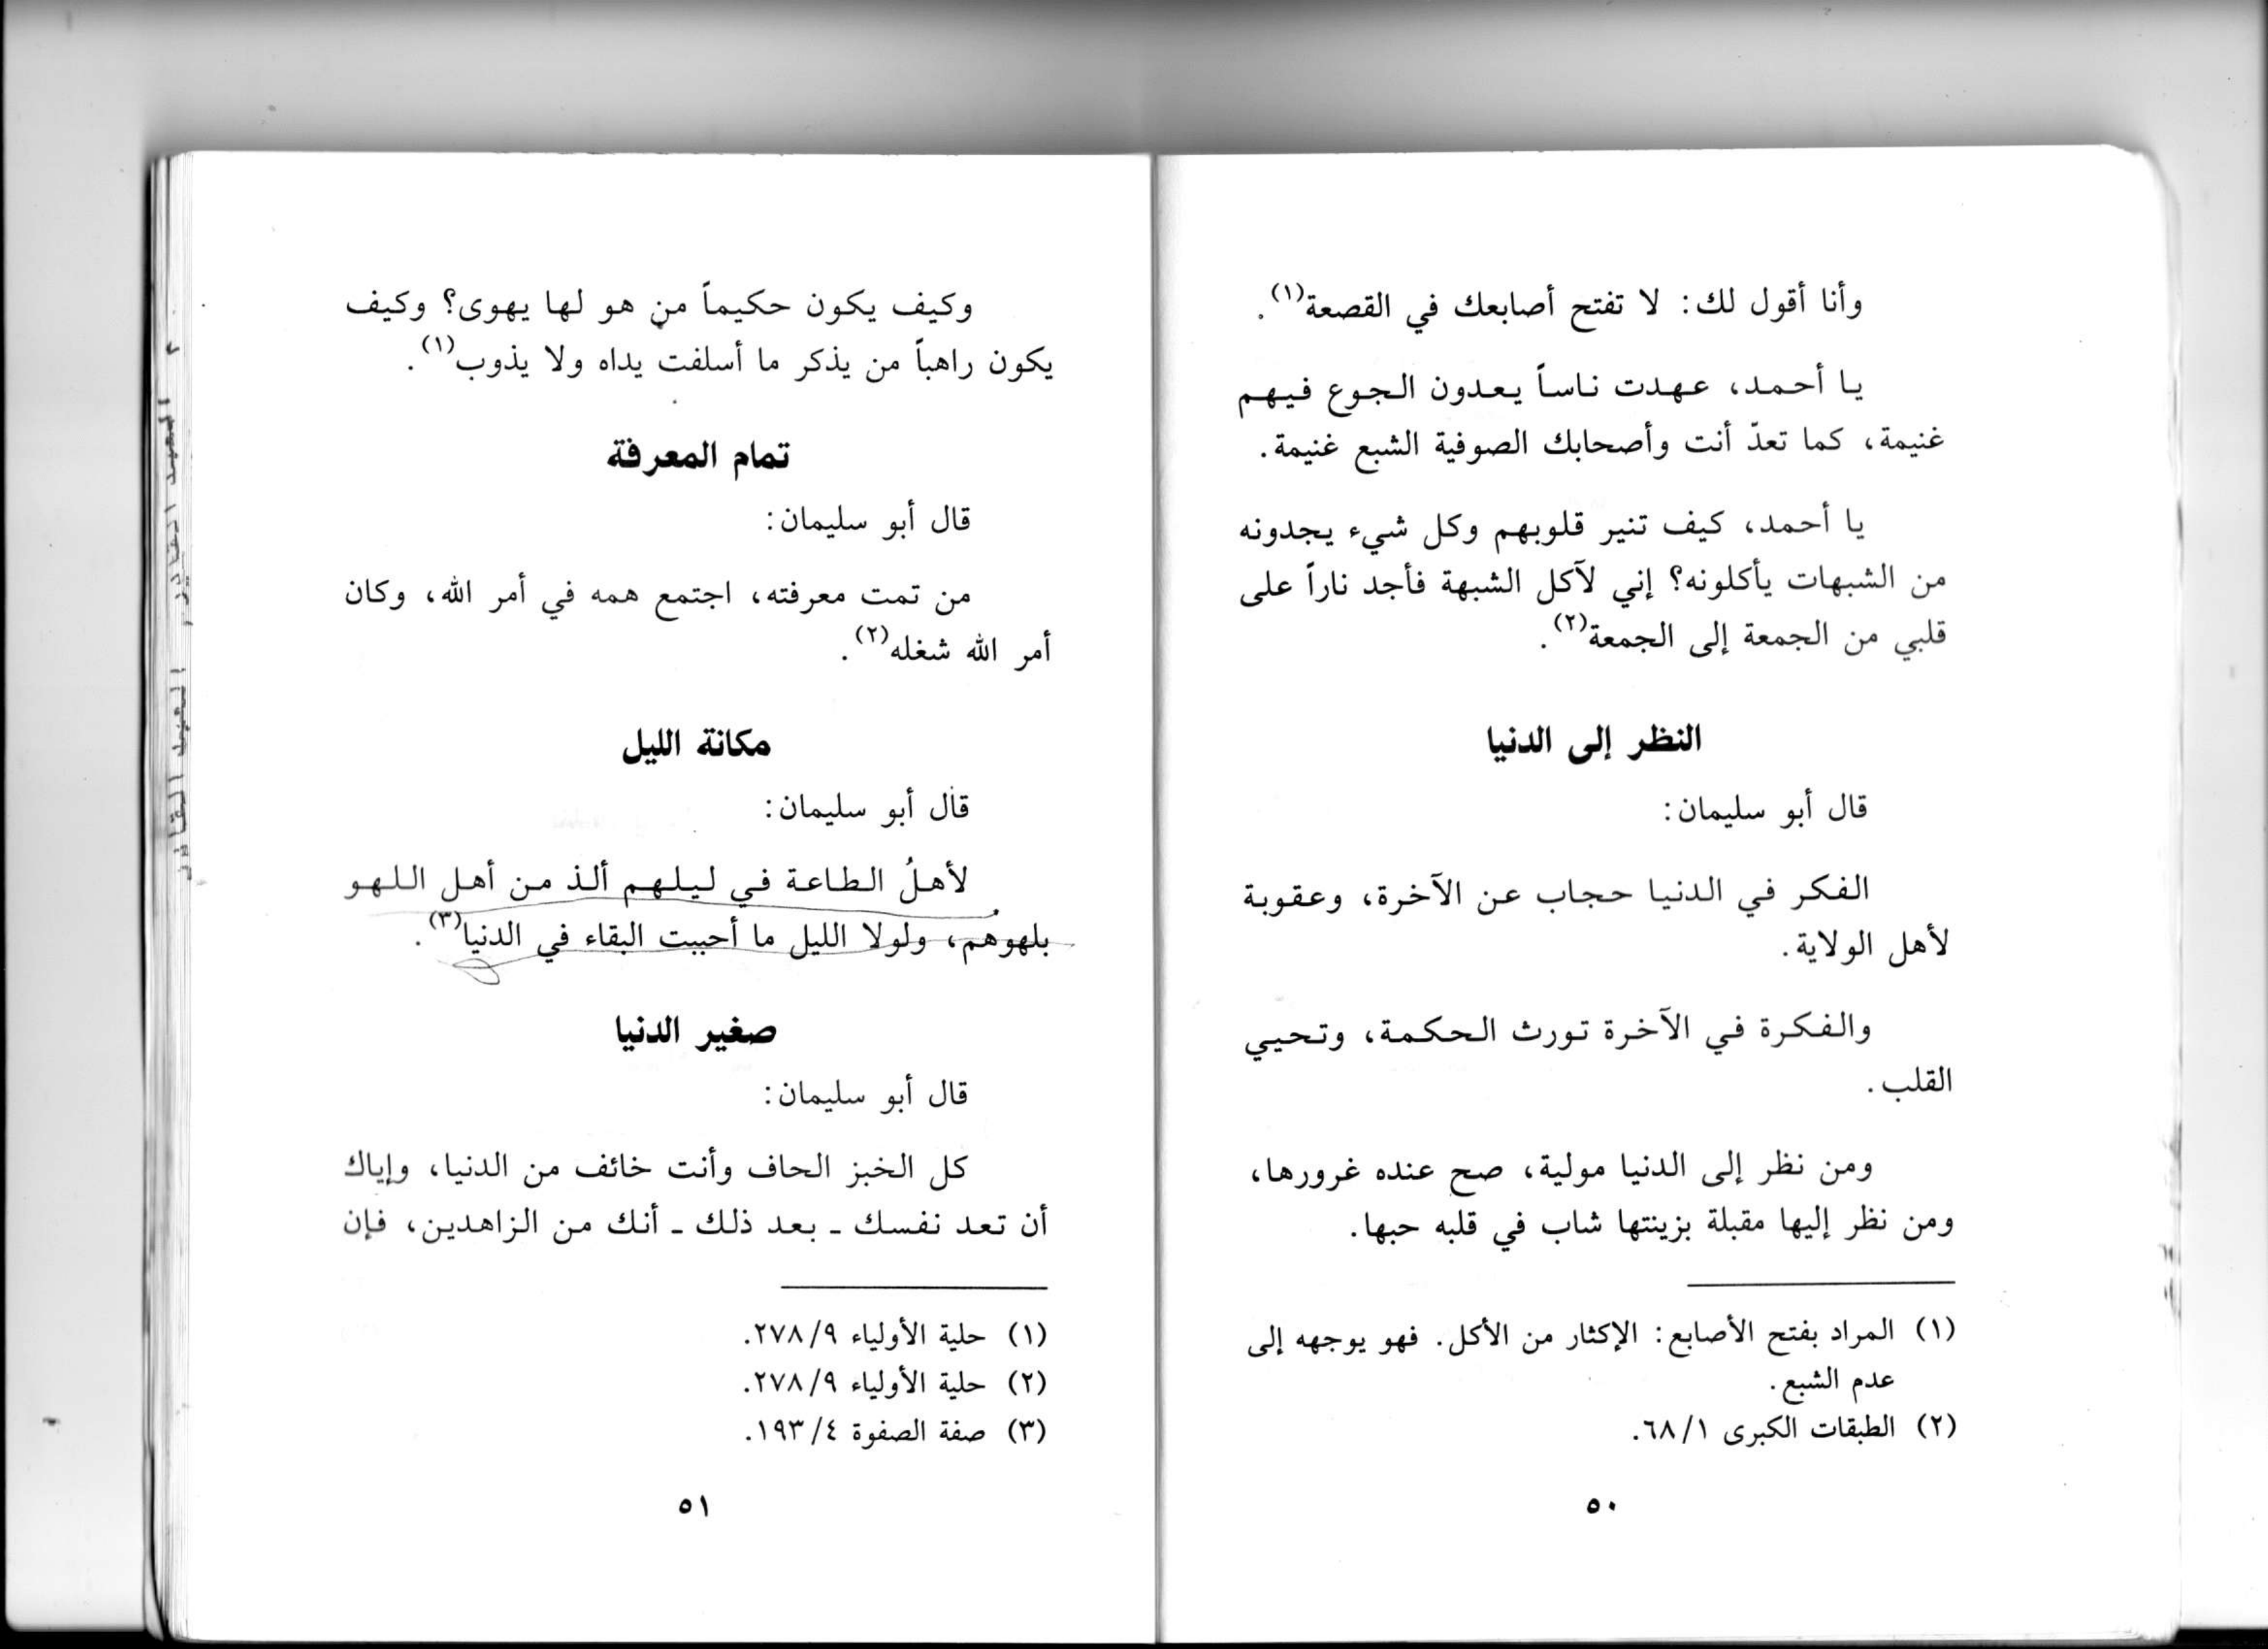 وأنا أقول لك: لا تفتح أصابعك في القصعة(١).
يا أحمد، عهدت ناساً يعدون الجوع فيهم
غنيمة، كما تعدّ أنت وأصحابك الصوفية الشبع غنيمة.
يا أحمد، كيف تنير قلوبهم وكل شيء يجدونه
من الشبهات يأكلونه؟ إني لآكل الشبهة فأجد ناراً على
قلبي من الجمعة إلى الجمعة(٢).
النظر إلى الدنيا
قال أبو سليمان:
الفكر في الدنيا حجاب عن الآخرة، وعقوبة
لأهل الولاية.
والفكرة في الآخرة تورث الحكمة، وتحيي
القلب.
ومن نظر إلى الدنيا مولية، صح عنده غرورها،
ومن نظر إليها مقبلة بزينتها شاب في قلبه حبها.
(١) المراد بفتح الأصابع: الإكثار من الأكل. فهو يوجهه إلى
عدم الشبع.
(٢) الطبقات الكبرى ٦٨/١.
٥٠
وكيف يكون حكيماً من هو لها يهوى؟ وكيف
يكون راهباً من يذكر ما أسلفت يداه ولا يذوب(١).
تمام المعرفة
قال أبو سليمان:
من تمت معرفته، اجتمع همه في أمر الله، وكان
أمر الله شغله(٢).
مكانة الليل
قال أبو سليمان:
لأهلُ الطاعة في ليلهم ألذ من أهل اللهو
بلهوهم، ولولا الليل ما أحببت البقاء في الدنيا(٣).
صغير الدنيا
قال أبو سليمان:
كل الخبز الحاف وأنت خائف من الدنيا، وإياك
أن تعد نفسك ـ بعد ذلك ـ أنك من الزاهدين، فإن
(١) حلية الأولياء ٢٧٨/٩.
(٢) حلية الأولياء ٢٧٨/٩.
(٣) صفة الصفوة ١٩٣/٤.
٥١